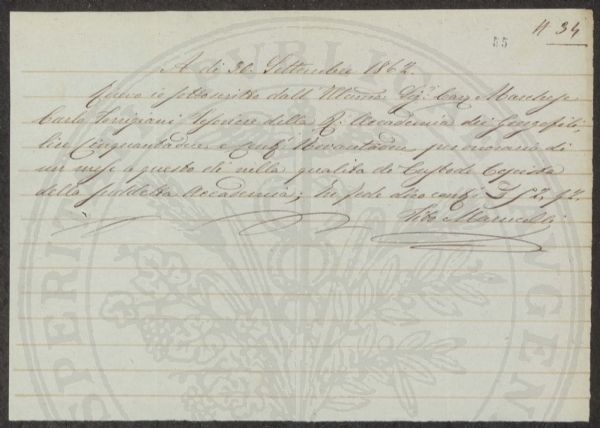 N 34
55
A dì 30. Settembre 1862.
Ricevo io sottoscritto dall' Illmo Sig.r Cav. Marchese
Carlo Torrigiani Tesoriere della R. Accademia dei Georgofili
lire Cinquantadue e Cent.i Novantadue per onorario di
un mese a questo dì nella qualità di Custode Copista
della suddetta Accademia; In fede dico cont.i £ 52. 92.
Vito Marucelli